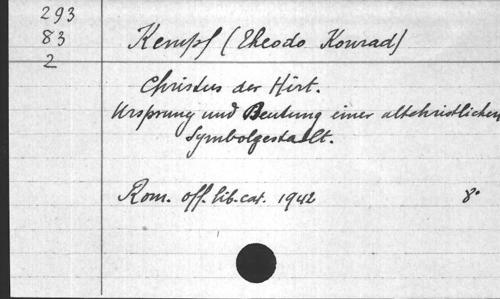 293
83
2
Kempf (Theodo Konrad)
Christus der Hirt.
Ursprung und Deutung einer altchristlichen
Symbolgestalt.
Rom. off. lib. cat. 1942 8°